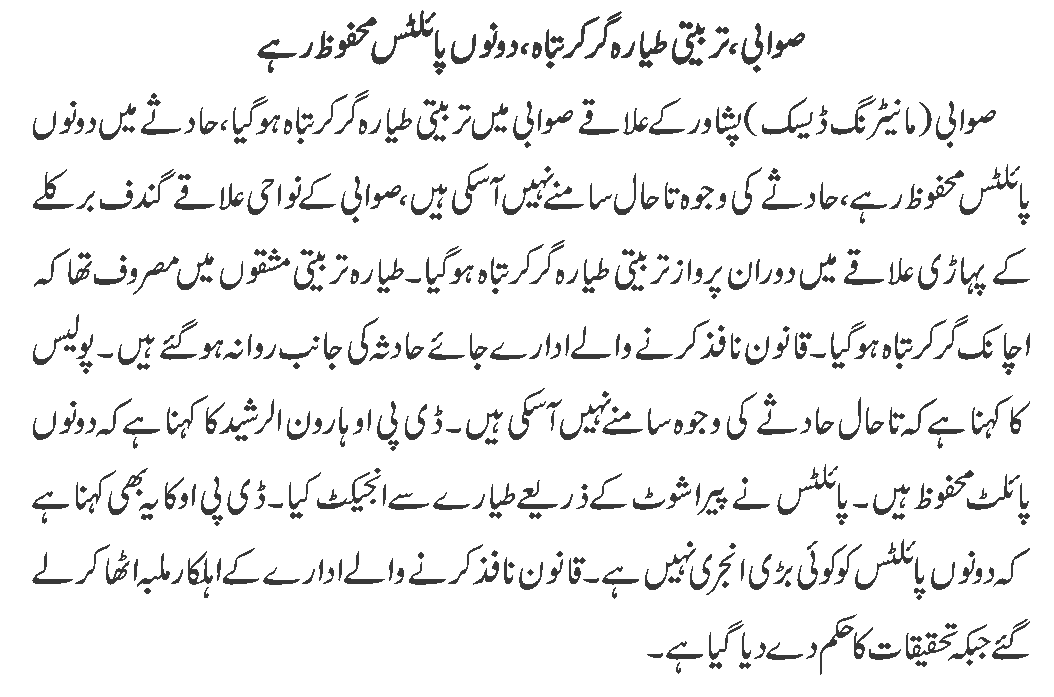 صوابی، تربیتی طیارہ گر کر تباہ، دونوں پائلٹس محفوظ رہے
صوابی (مانیٹرنگ ڈیسک) پشاور کے علاقے صوابی میں تربیتی طیارہ گر کر تباہ ہوگیا، حادثے میں دونوں
پائلٹس محفوظ رہے، حادثے کی وجوہ تاحال سامنے نہیں آسکی ہیں، صوابی کے نواحی علاقے گندف برکلے
کے پہاڑی علاقے میں دوران پرواز تربیتی طیارہ گر کر تباہ ہوگیا۔ طیارہ تربیتی مشقوں میں مصروف تھا کہ
اچانک گر کر تباہ ہوگیا۔ قانون نافذ کرنے والے ادارے جائے حادثہ کی جانب روانہ ہوگئے ہیں۔ پولیس
کا کہنا ہے کہ تاحال حادثے کی وجوہ سامنے نہیں آسکی ہیں۔ ڈی پی او ہارون الرشید کا کہنا ہے کہ دونوں
پائلٹ محفوظ ہیں۔ پائلٹس نے پیراشوٹ کے ذریعے طیارے سے انجیکٹ کیا۔ ڈی پی او کا یہ بھی کہنا ہے
کہ دونوں پائلٹس کو کوئی بڑی انجری نہیں ہے۔ قانون نافذ کرنے والے ادارے کے اہلکار ملبہ اٹھا کر لے
گئے جبکہ تحقیقات کا حکم دے دیا گیا ہے۔